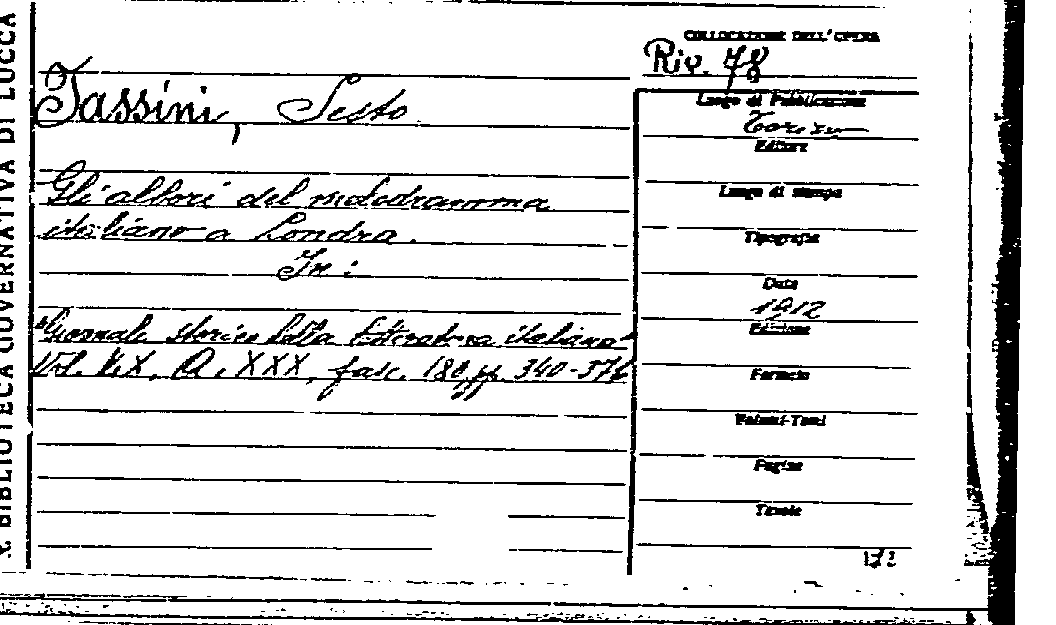 R. BIBLIOTECA GOVERNATIVA DI LUCCA
COLLOCAZIONE DELL'OPERA
Riv. 78
Tassini, Sesto
Gli albori del melodramma
italiano a Londra.
In:
"Giornale storico della letteratura italiana"
Vol. A. XXX, fasc. 180, pp. 340-376
Luogo di Pubblicazione
Torino
Editore
Luogo di stampa
Tipografia
Data
1912
Edizione
Formato
Volumi-Tomi
Pagine
Tavole